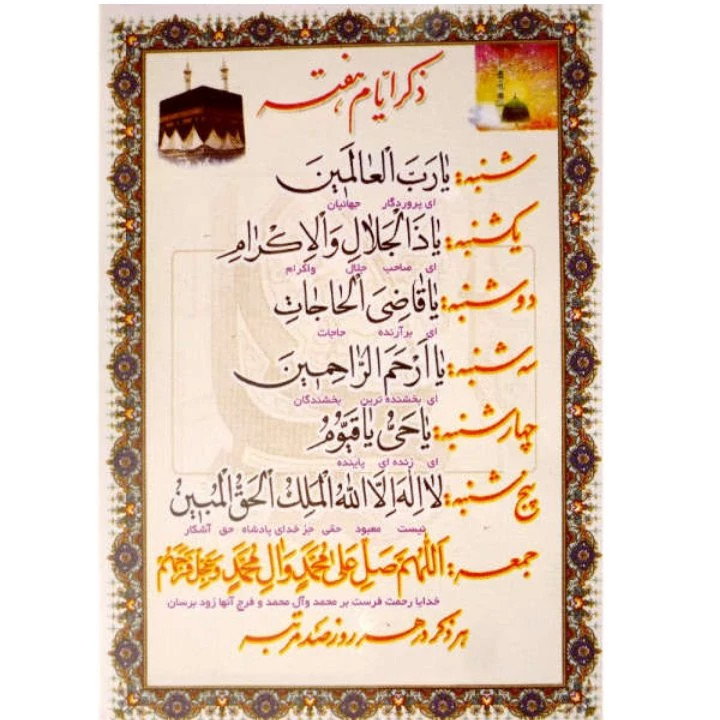 ذکر ایام هفته
شنبه: یا رَبَّ الْعالَمین
ای پروردگار جهانیان
یکشنبه: یا ذَا الْجَلالِ وَالْاِکْرام
ای صاحب جلال واکرام
دوشنبه: یا قاضِیَ الْحاجات
ای برآرنده حاجات
سه شنبه: یا اَرْحَمَ الرّاحِمین
ای بخشنده ترین بخشندگان
چهارشنبه: یا حَیُّ یا قَیّوُمُ
ای زنده ای پاینده
پنج شنبه: لا اِلهَ اِلَّا اللهُ الْمَلِكُ الْحَقُّ الْمُبین
نیست معبود حقی جز خدای پادشاه حق آشکار
جمعه: اَللّهُمَّ صَلِّ عَلی مُحَمَّدٍ وَالِ مُحَمَّدٍ وَعَجِّلْ فَرَجَهُمْ
خدایا رحمت فرست بر محمد وآل محمد و فرج آنها زود برسان
هر ذکر در هر روز صد مرتبه